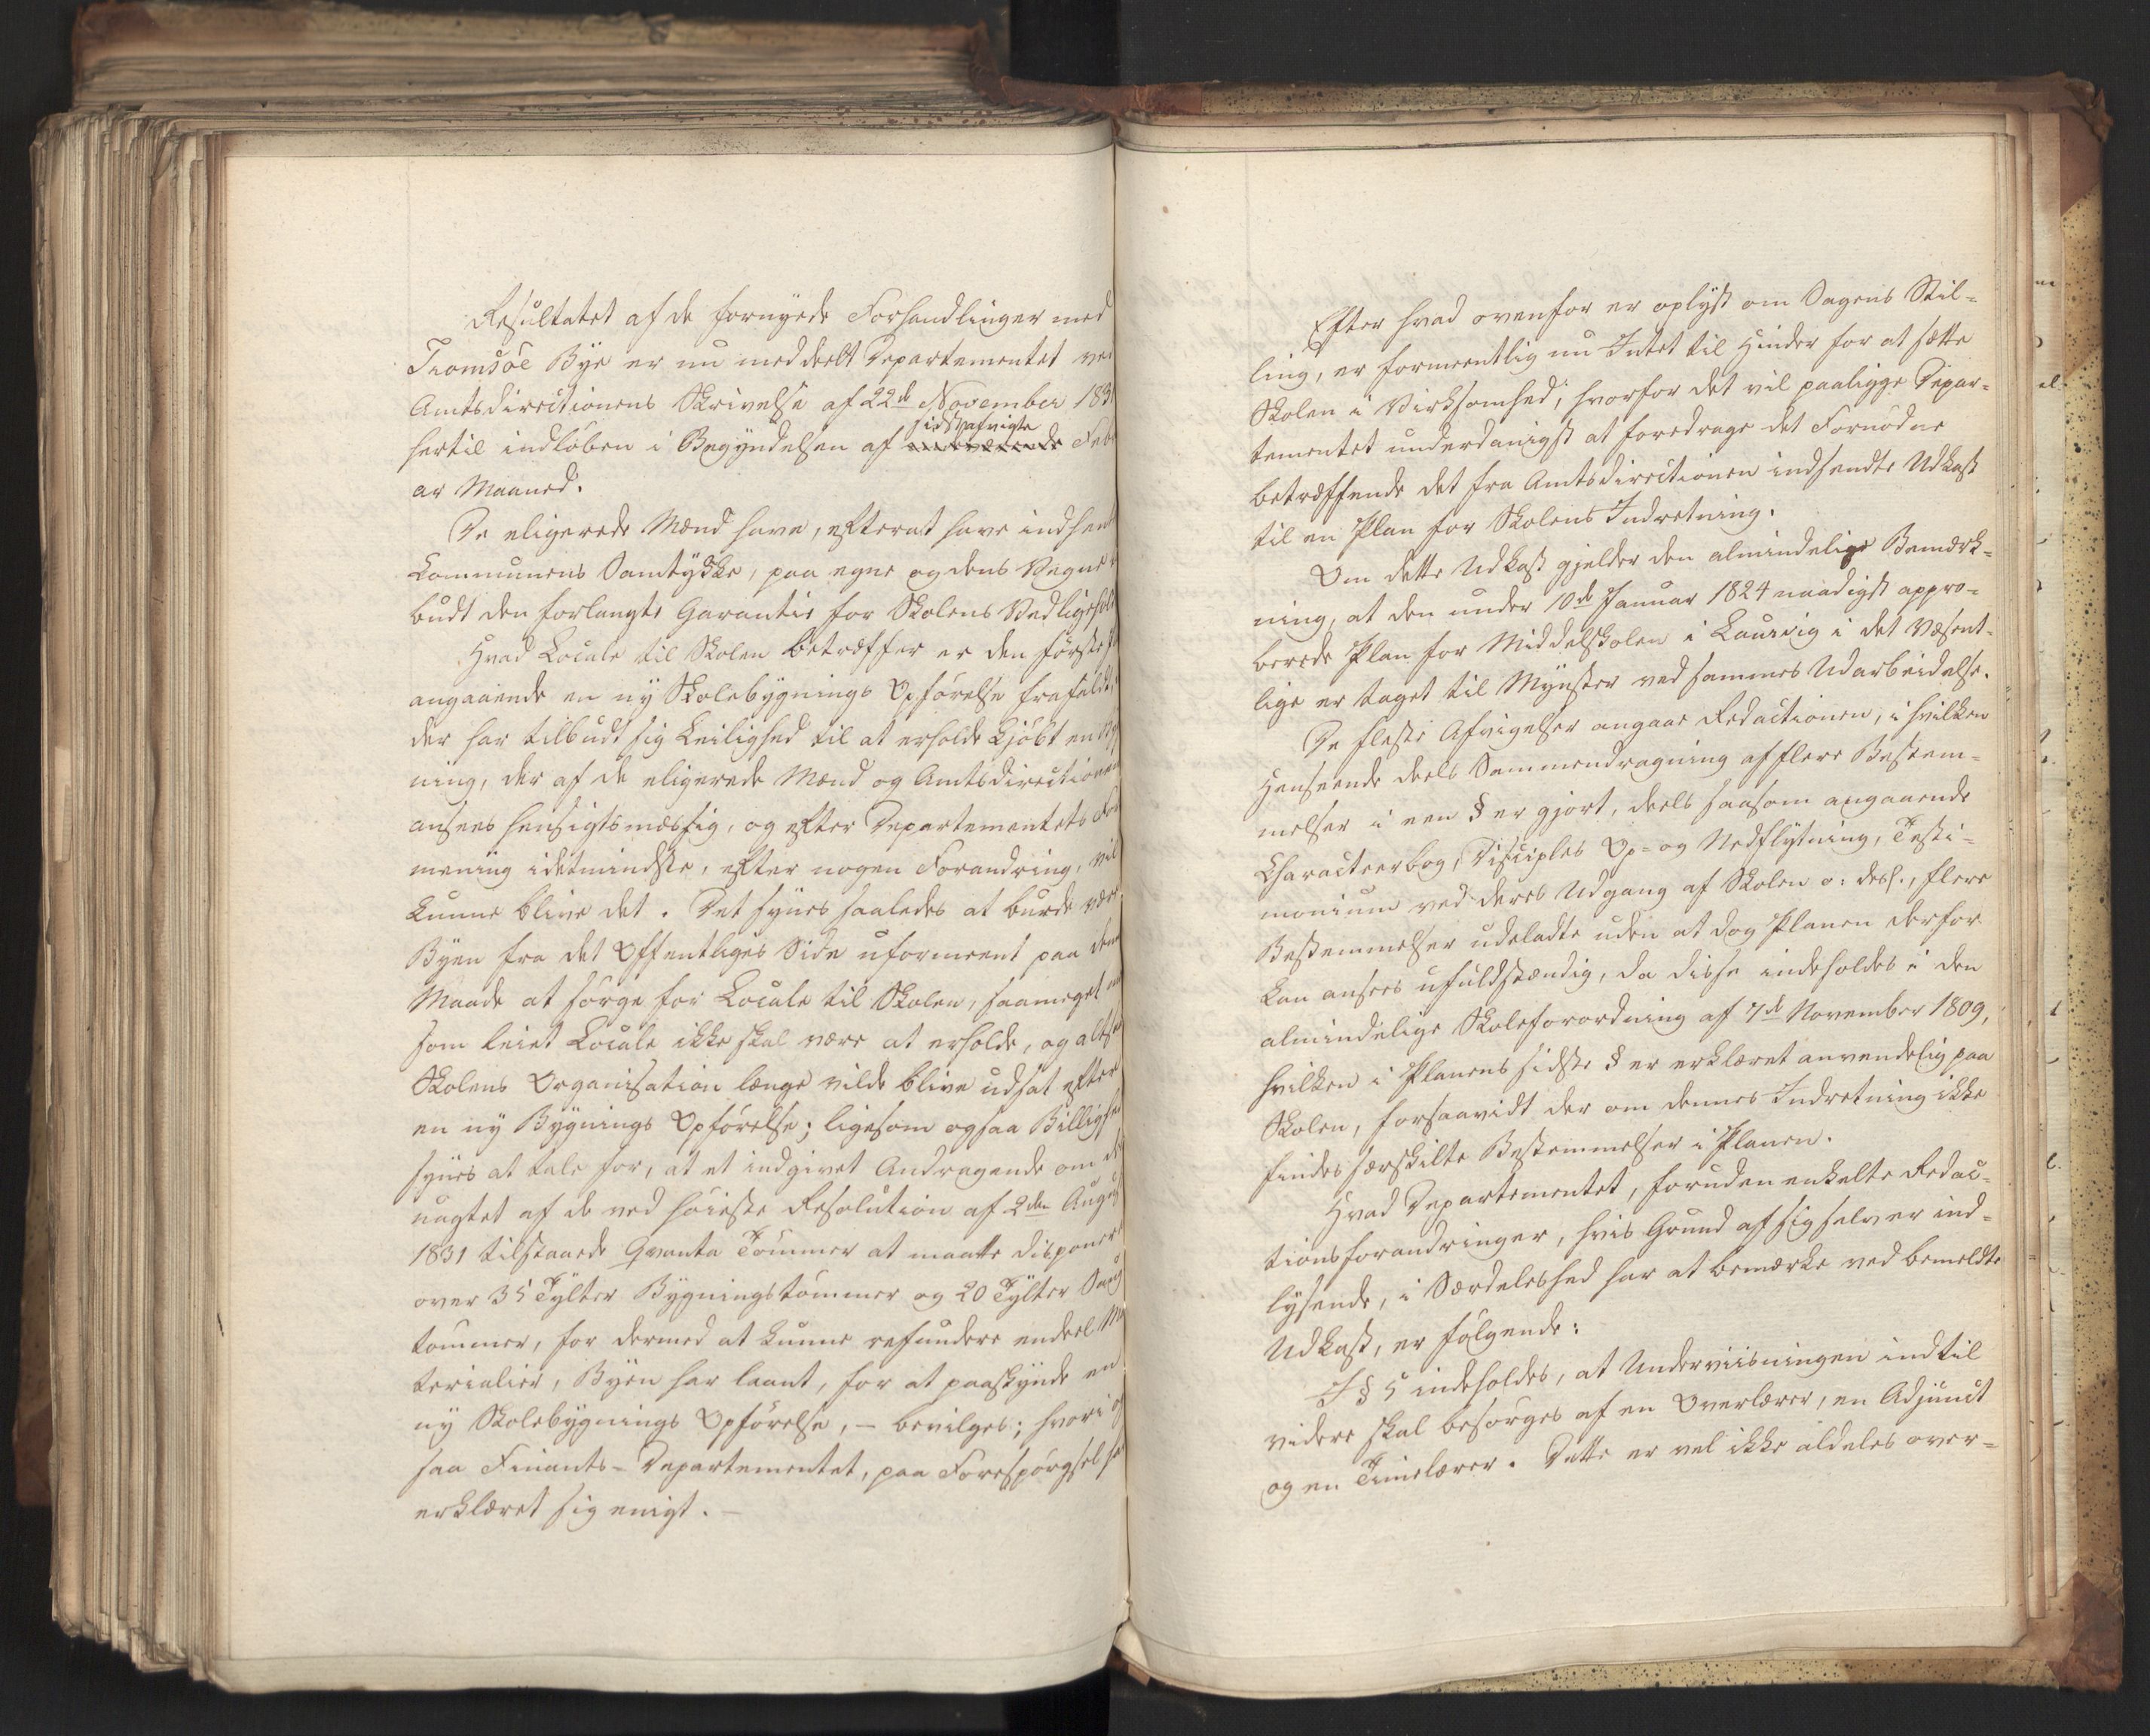 Resultatet af de fornyede Forhandlinger med
Tromsöe Bye er nu meddeelt Departementet ved
Amtsdirectionens Skrivelse af 22de November 183
hertil indlöben i Begyndelsen af sidstafvigte nærværende Febr
ar Maaned.
De eligerede Mænd have, efterat have indhent
Communens Samtykke, paa egne og dens Vegne
budt den forlangte Garantie for Skolens Vedligehold
Hvad Locale til Skolen betræffer er den förste
angaaende en ny Skolebygnings Opförelse frafaldt,
der har tilbudt sig Leilighed til at erholde kjöbt en Byg
ning, der af de eligerede Mænd og Amtsdirectionen
ansees hensigtsmæssig, og efter Departementets For
mening idetmindste, efter nogen Forandring, vil
kunne blive det. Det synes saaledes at burde være
Byen fra det Offentliges Side uformeent paa denne
Maade at sörge for Locale til Skolen, saameget
som leiet Locale ikke skal være at erholde, og altsaa
Skolens Organisation længe vilde blive udsat efter
en ny Bygnings Opförelse; ligesom ogsaa Billighed
synes at tale for, at et indgivet Andragende om
uagtet af de ved höieste Resolution af 2den August
1831 tilstaaede Qvanta Tömmer at maatte disponere
over 35 Tylter Bygningstömmer og 20 Tylter Saug
tömmer, for dermed at kunne refundere endeel Ma
terialier, Byen har laant, for at paaskynde en
ny Skolebygnings Opförelse, – bevilges; hvori og
saa Finants-Departementet, paa Forespörgsel har
erklæret sig enigt. –
Efter hvad ovenfor er oplyst om Sagens Stil-
ling, er formeentlig nu Intet til Hinder for at sætte
Skolen i Virksomhed; hvorfor det vil paaligge Depar-
tementet underdanigst at foredrage det Fornödne
betræffende det fra Amtsdirectionen indsendte Udkast
til en Plan for Skolens Indretning.
Om dette Udkast gjelder den almindelige Bemærk-
ning, at den under 10de Januar 1824 naadigst appro-
berede Plan for Middelskolen i Laurvig i det Væsent-
lige er taget til Mynster ved sammes Udarbeidelse.
De fleste Afvigelser angaae Redactionen, i hvilken
Henseende deels Sammendragning af flere Bestem-
melser i een § er gjort, deels saasom angaaende
Characteerbog, Disciples Op- og Nedflytning, Testi-
monium ved deres Udgang af Skolen o: desl., flere
Bestemmelser udeladte uden at dog Planen derfor
kan ansees ufuldstændig, da disse indeholdes i den
almindelige Skoleforordning af 7de November 1809,
hvilken i Planens sidste § er erklæret anvendelig paa
Skolen, forsaavidt der om dennes Indretning ikke
findes særskilte Bestemmelser i Planen.
Hvad Departementet, foruden enkelte Redac-
tionsforandringer, hvis Grund af sig selv er ind-
lysende, i Særdeleshed har at bemærke ved bemeldte
Udkast, er fölgende:
I § 5 indeholdes, at Underviisningen indtil
videre skal besörges af en Overlærer, en Adjunct
og en Timelærer. Dette er vel ikke aldeles over-